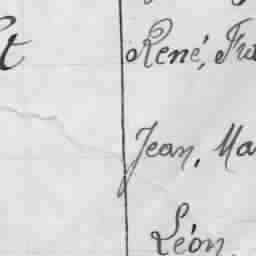 René,
Jean, Ma
Léon